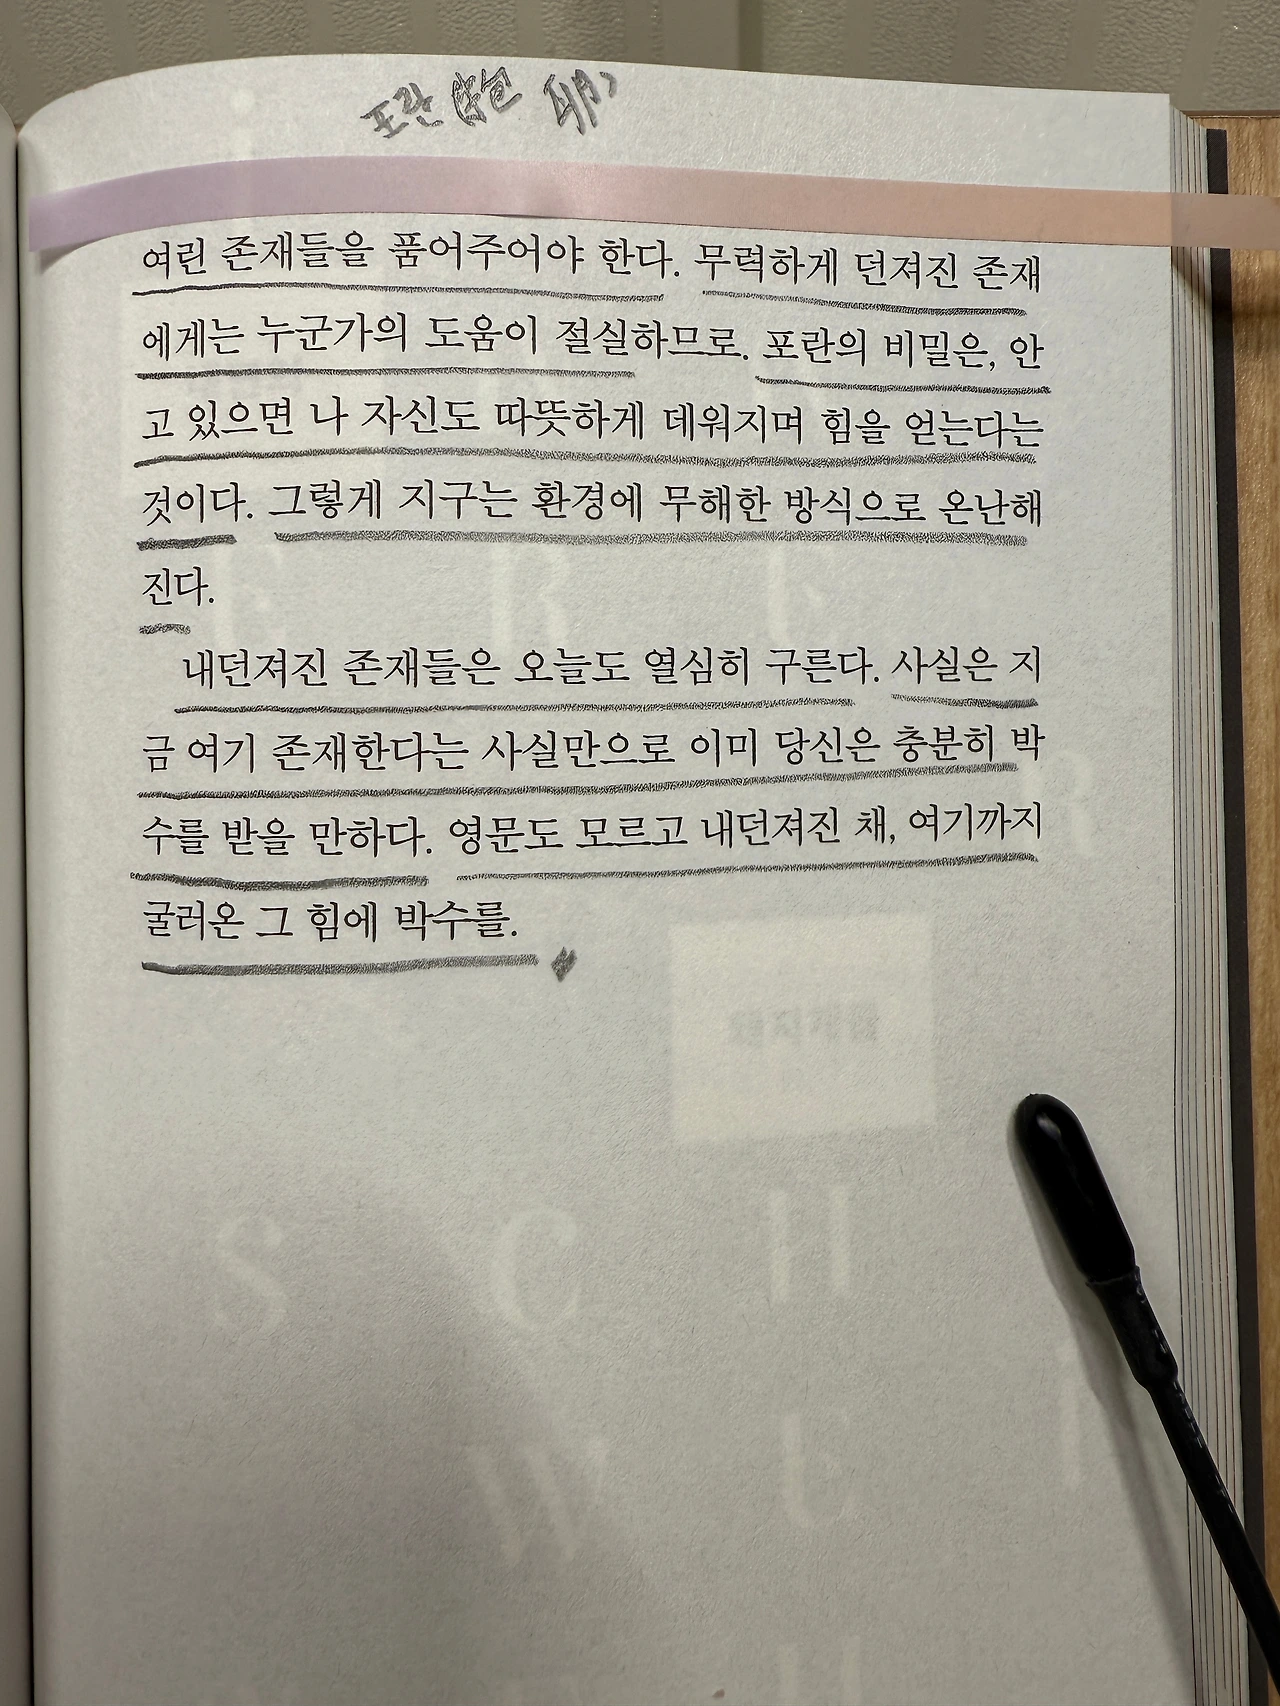 포란(抱 卵)
여린 존재들을 품어주어야 한다. 무력하게 던져진 존재
에게는 누군가의 도움이 절실하므로. 포란의 비밀은, 안
고 있으면 나 자신도 따뜻하게 데워지며 힘을 얻는다는
것이다. 그렇게 지구는 환경에 무해한 방식으로 온난해
진다.
내던져진 존재들은 오늘도 열심히 구른다. 사실은 지
금 여기 존재한다는 사실만으로 이미 당신은 충분히 박
수를 받을 만하다. 영문도 모르고 내던져진 채, 여기까지
굴러온 그 힘에 박수를.